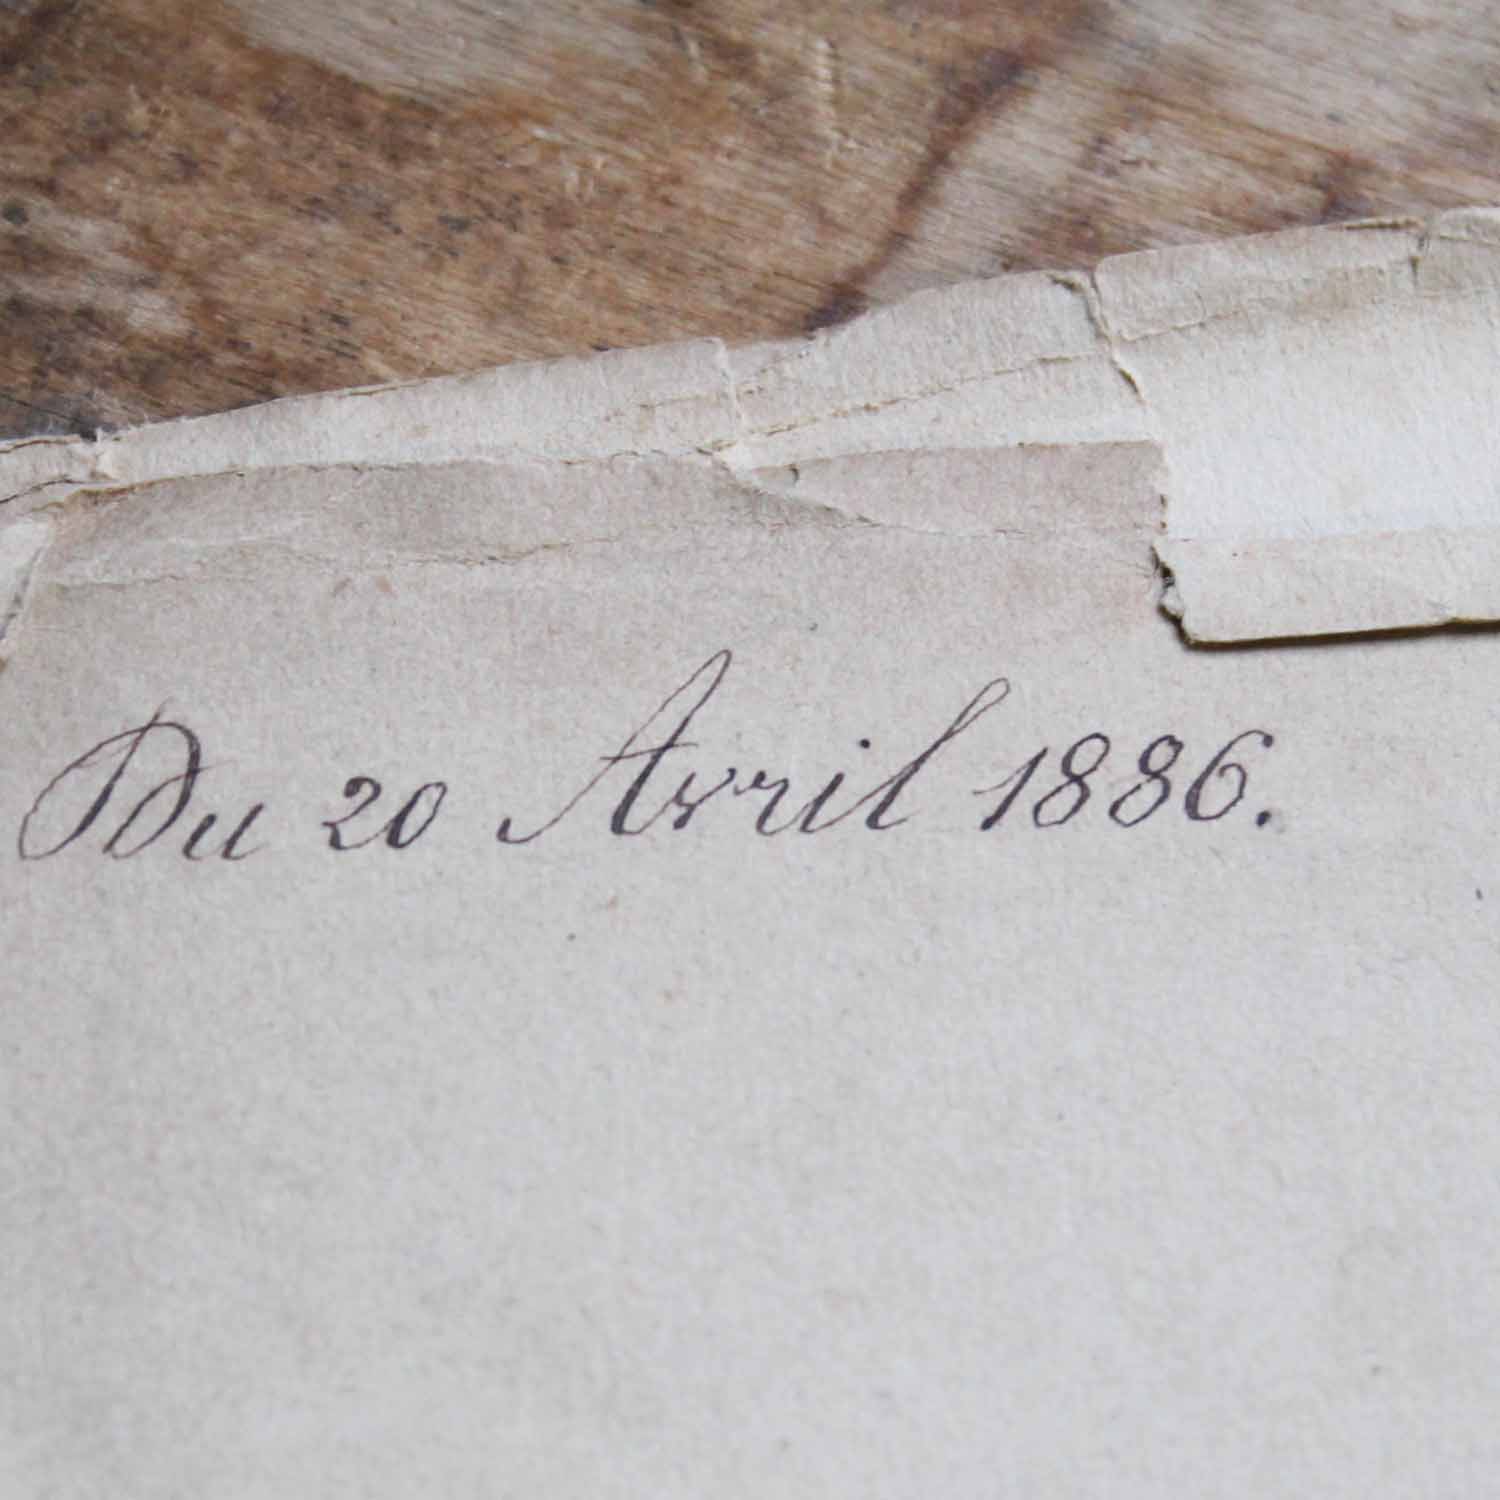 Du 20 Avril 1886.